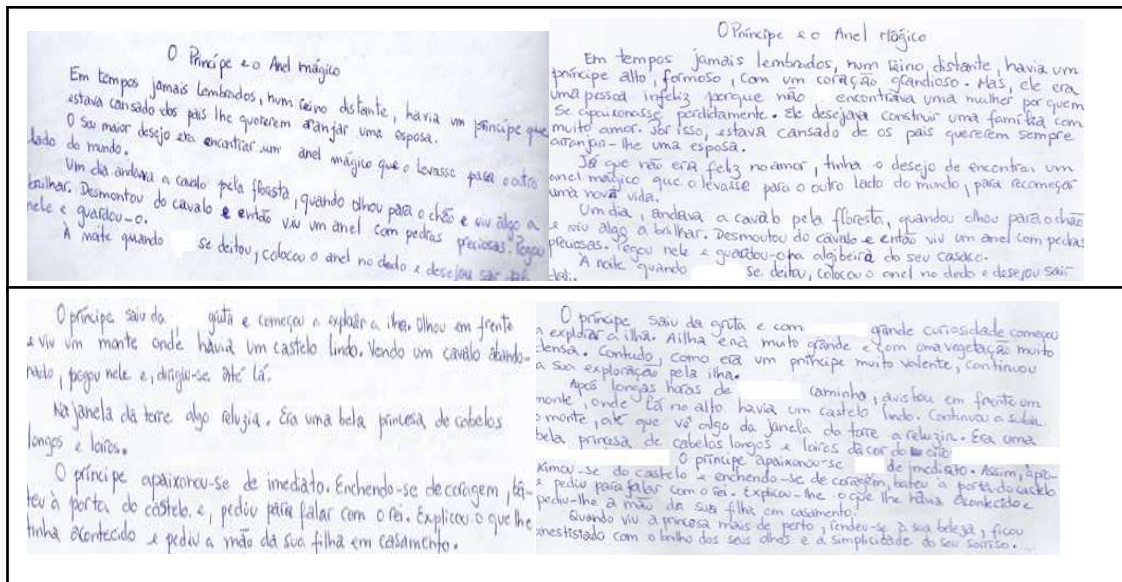 O Príncipe e o Anel mágico
Em tempos jamais lembrados, num reino distante, havia um príncipe que
estava cansado dos pais lhe quererem arranjar uma esposa.
O seu maior desejo era encontrar um anel mágico que o levasse para o outro
lado do mundo.
Um dia andava a cavalo pela floresta, quando olhou para o chão e viu algo a
brilhar. Desmontou do cavalo e então viu um anel com pedras preciosas. Pegou
nele e guardou-o.
À noite quando se deitou, colocou o anel no dedo e desejou sair
O Príncipe e o Anel Mágico
Em tempos jamais lembrados, num reino distante, havia um
príncipe alto, formoso, com um coração grandioso. Mas, ele era
uma pessoa infeliz porque não encontrava uma mulher por quem
se apaixonasse perdidamente. Ele desejava construir uma família com
muito amor. Por isso, estava cansado de os pais quererem sempre
arranjar-lhe uma esposa.
Já que não era feliz no amor, tinha o desejo de encontrar um
anel mágico que o levasse para o outro lado do mundo, para recomeçar
uma nova vida.
Um dia, andava a cavalo pela floresta, quandou olhou para o chão
e viu algo a brilhar. Desmoutou do cavalo e então viu um anel com pedras
preciosas. Pegou nele e guardou-o na algibeira do seu casaco.
À noite quando se deitou, colocou o anel no dedo e desejou sair
dali.
O príncipe saiu da gruta e começou a explorar a ilha. Olhou em frente
e viu um monte onde havia um castelo lindo. Vendo um cavalo abando-
nado, pegou nele e, dirigiu-se até lá.
Na janela da torre algo reluzia. Era uma bela princesa de cabelos
longos e loiros.
O príncipe apaixonou-se de imediato. Enchendo-se de coragem, ba-
teu à porta do castelo e, pediu para falar com o rei. Explicou o que lhe
tinha acontecido e pediu a mão da sua filha em casamento.
O príncipe saiu da gruta e com grande curiosidade começou
a explorar a ilha. A ilha era muito grande e com uma vegetação muito
densa. Contudo, como era um príncipe muito valente, continuou
a sua exploração pela ilha.
Após longas horas de caminho, avistou em frente um
monte, onde lá no alto havia um castelo lindo. Continuou a subir
o monte, até que vê algo da janela da torre a reluzir. Era uma
bela princesa de cabelos longos e loiros da cor do
O príncipe apaixonou-se de imediato. Assim, apro-
ximou-se do castelo e enchendo-se de coragem, bateu à porta do castelo
e pediu para falar com o rei. Explicou-lhe o que lhe havia acontecido e
pediu-lhe a mão da sua filha em casamento.
Quando viu a princesa mais de perto, rendeu-se à sua beleza, ficou
anestistado com o brilho dos seus olhos e a simplicidade do seu sorriso.